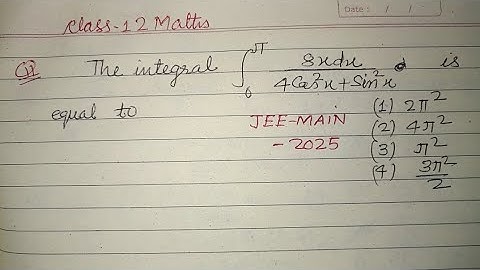 Date : / /
Class-12 Maths
Q1 The integral ∫₀^π 8xdx / (4Cos²x + Sin²x) is
equal to
JEE-MAIN
-2025
(1) 2π²
(2) 4π²
(3) π²
(4) 3π²/2